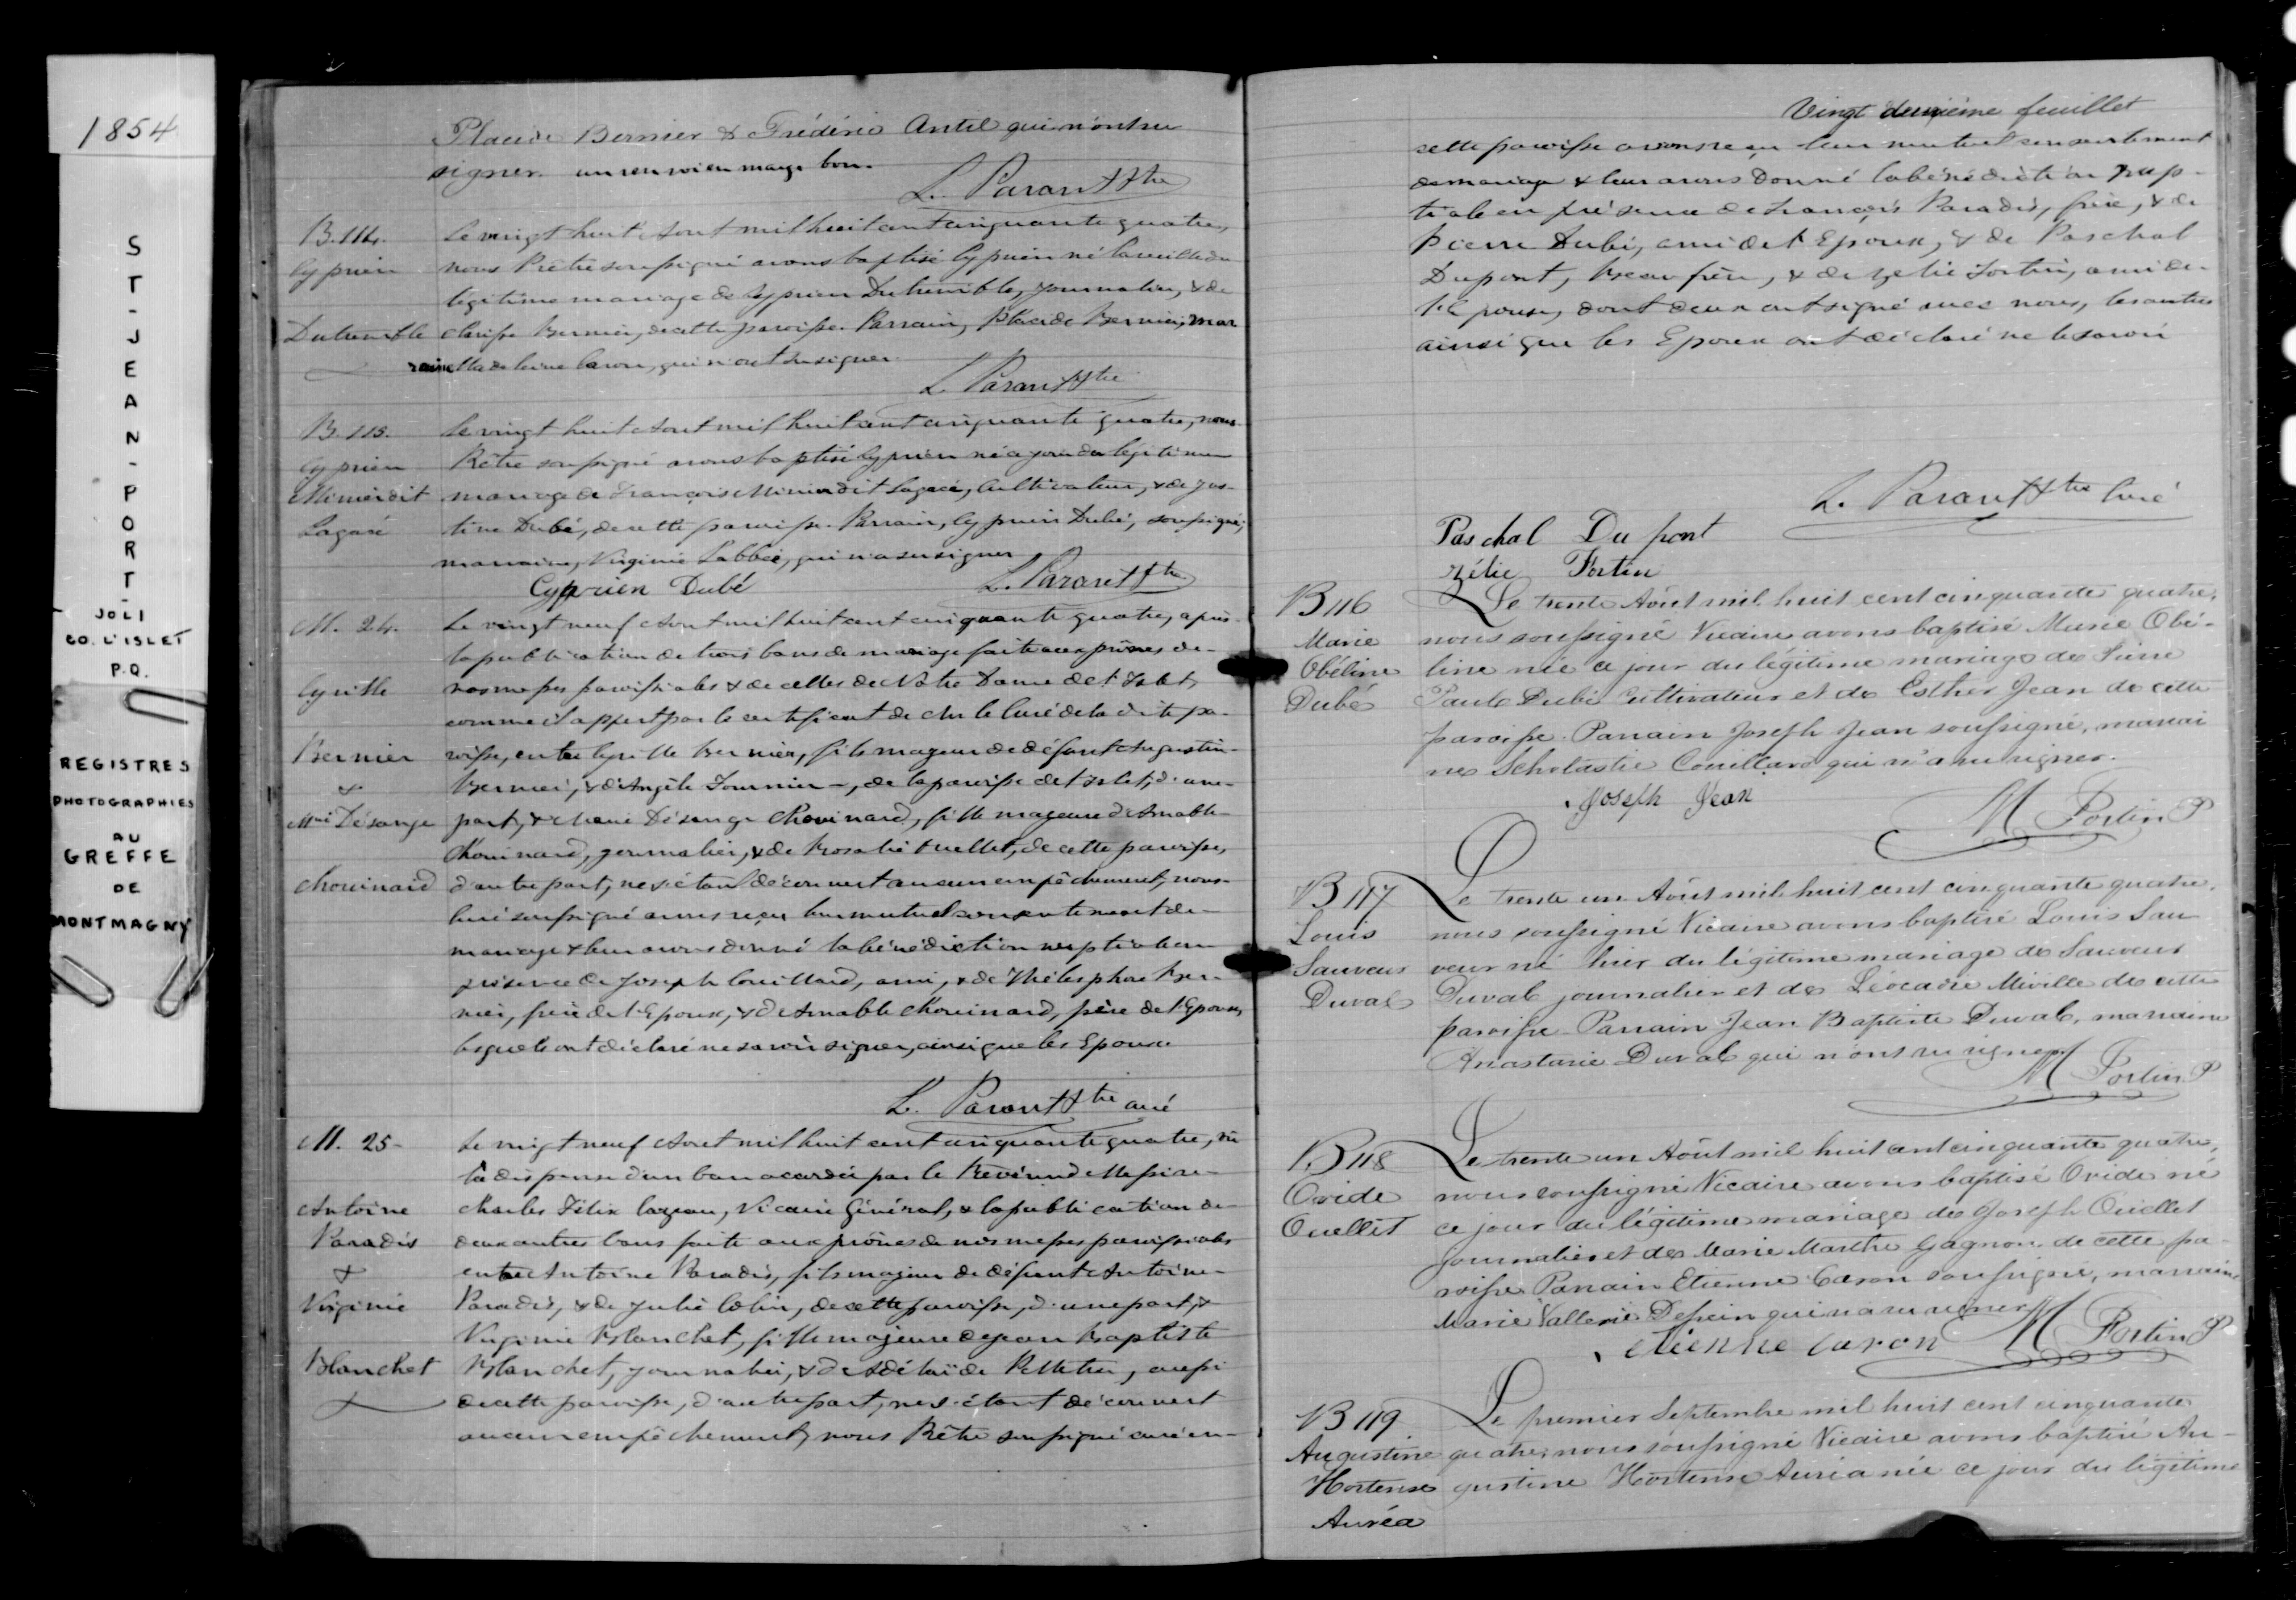 1854
ST-JEAN-PORT-
JOLI
CO. L'ISLET
P.Q.
REGISTRES
PHOTOGRAPHIES
AU
GREFFE
DE
MONTMAGNY
Placide Bernier & Frédéric Antil qui n'ont su
signer. un renvoi en marge bon.
L. Parant Ptre
B. 114.
Cyprien
Dutremble
Le vingt huit Aout mil huit cent cinquante quatre,
nous Prêtre soussigné avons baptisé Cyprien né la veille du
légitime mariage de Cyprien Dutremble, journalier, & de
Clarisse Bernier, de cette paroisse. Parrain, Placide Bernier, mar
raine Madeleine Caron, qui n'ont su signer.
L. Parant Ptre
B. 115.
Cyprien
Miner dit
Lagacé
Le vingt huit Aout mil huit cent cinquante quatre, nous
Prêtre soussigné avons baptisé Cyprien né ce jour du légitime
mariage de François Miner dit Lagacé, Cultivateur, & de Jus-
tine Dubé, de cette paroisse. Parrain, Cyprien Dubé, soussigné;
marraine, Virginie Labbée, qui n'a su signer
Cyprien Dubé
L. Parant Ptre
M. 24.
Cyrille
Bernier
&
Mie Désange
Chouinard
Le vingt neuf Aout mil huit cent cinquante quatre, après
la publication de trois bans de mariage faite aux prônes de
nos messes paroissiales & de celles de Notre Dame de l'Islet,
comme il appert par le certificat de Mr le Curé de la dite pa-
roisse, entre Cyrille Bernier, fils majeur de défunt Augustin
Bernier, & d'Angèle Fournier, de la paroisse de l'Islet, d'une
part, & Marie Désange Chouinard, fille majeure d'Amable
Chouinard, journalier, & de Rosalie Ouellet, de cette paroisse,
d'autre part, ne s'étant découvert aucun empêchement, nous
Curé soussigné avons reçu leur mutuel consentement de
mariage & leur avons donné la bénédiction nuptiale en
présence de Joseph Couillard, ami, & de Thélesphore Ber-
nier, frère de l'Epoux, & d'Amable Chouinard, père de l'Epouse,
lesquels ont déclaré ne savoir signer, ainsi que les Epoux
L. Parant Ptre curé
M. 25
Antoine
Paradis
&
Virginie
Blanchet
Le vingt neuf Aout mil huit cent cinquante quatre, vu
la dispense d'un ban accordée par le Révérend Messire
Charles Félix Cazeau, Vicaire Général, & la publication de
deux autres bans faite aux prônes de nos messes paroissiales
entre Antoine Paradis, fils majeur de défunt Antoine
Paradis, & de Julie Colin, de cette paroisse, d'une part, &
Virginie Blanchet, fille majeure de Jean Baptiste
Blanchet, journalier, & d'Adélaïde Pelletier, aussi
de cette paroisse, d'autre part, ne s'étant découvert
aucun empêchement, nous Prêtre soussigné curé en
Vingt deuxième feuillet
cette paroisse avons reçu leur mutuel consentement
de mariage & leur avons donné la bénédiction nup-
tiale en présence de François Paradis, frère, & de
Pierre Dubé, ami de l'Epoux, & de Paschal
Dupont, beau frère, & de Zélie Fortin, amie de
l'Epouse, dont deux ont signé avec nous, les autres
ainsi que les Epoux ont déclaré ne le savoir
L. Parant Ptre Curé
Paschal Dupont
Zélie Fortin
B 116
Marie
Obéline
Dubé
Le trente Août mil huit cent cinquante quatre,
nous soussigné Vicaire avons baptisé Marie Obé-
line née ce jour du légitime mariage de Pierre
Paul Dubé Cultivateur et de Esther Jean de cette
paroisse. Parrain Joseph Jean soussigné, marrai
ne Scholastie Couillard qui n'a su signer.
Joseph Jean
M Fortin P
B 117
Louis
Sauveur
Duval
Le trente un Août mil huit cent cinquante quatre,
nous soussigné Vicaire avons baptisé Louis Sau
veur né hier du légitime mariage de Sauveur
Duval journalier et de Léocadie Miville de cette
paroisse Parrain Jean Baptiste Duval, marraine
Anastasie Duval qui n'ont su signer
M Fortin P
B 118
Ovide
Ouellet
Le trente un Août mil huit cent cinquante quatre,
nous soussigné Vicaire avons baptisé Ovide né
ce jour du légitime mariage de Joseph Ouellet
journalier et de Marie Marthe Gagnon de cette pa
roisse Parrain Etienne Caron soussigné, marraine
Marie Vallerie Depein qui n'a su signer
etienne caron
M Fortin P
B 119
Augustine
Hortense
Auréa
Le premier Septembre mil huit cent cinquante
quatre, nous soussigné Vicaire avons baptisé Au-
gustine Hortense Auréa née ce jour du légitime